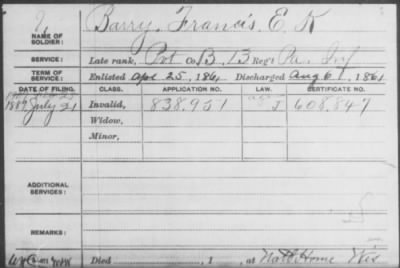 Barry, Francis E. K
NAME OF SOLDIER:
SERVICE: Late rank, Pvt Co. B, 13 Reg't Pa. Inf
TERM OF SERVICE: Enlisted Apr 25, 1861 Discharged Aug 6, 1861
DATE OF FILING. CLASS. APPLICATION NO. LAW. CERTIFICATE NO.
1889 July 21 Invalid, 838.951 J 608.847
Widow,
Minor,
ADDITIONAL SERVICES:
REMARKS:
Died , 1 , at Natl Home Wis